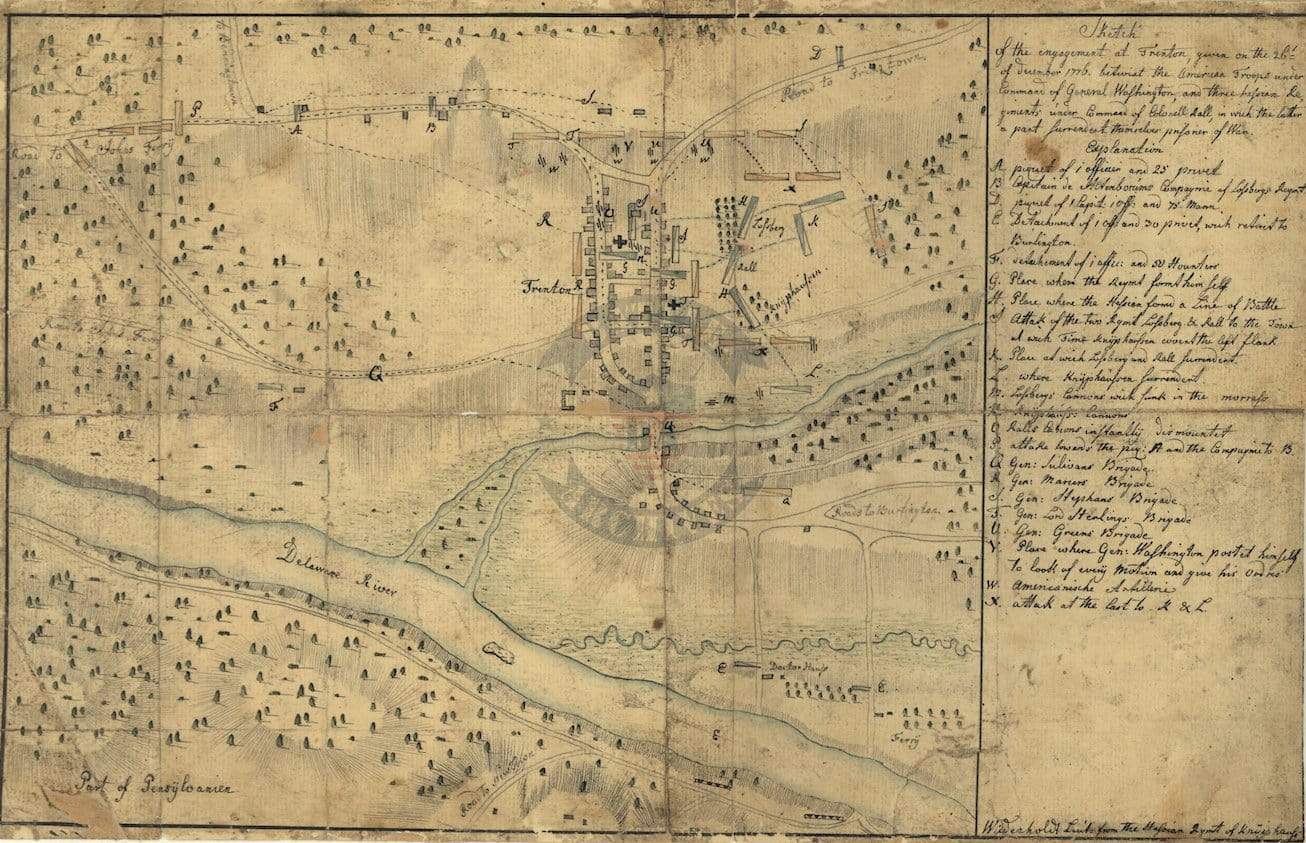 Sketch
of the engagement at Trenton, given on the 26t
of december 1776. betwixt the American Troops under
Command of General Washington, and three Hessian Re
giments under Command of Colonell Rall, in wich the latter
a part Surrendert themselves prisoner of War.
Explanation
A. piquet of 1 officer and 25 privet
B. Capitain de Altenbocums Compagnie of Lossbergs Regmt
D. piquet of 1 Capit. 1 Off: and 75 Mann
E. Detachment of 1 Off and 30 privet, wich retiret to
Burlington.
F. detachement of 1 offic: and 50 Hounters
G. Place where the Regmt formt him self
H. Place where the Hessian formd a Line of Battle
J. Attak of the two Regmt Lossberg & Rall to the Town
at wich Time Knÿphaussen covert the left flank
K. Place at wich Lossberg and Rall Surrendert.
L. where Knÿphaussen Surrendert
M. Lossbergs Cannons wich sunk in the morrass
Knÿphauss: Cannons
O Ralls Canons instantly dismountet
P. attake towards the piq: A and the Compagnie to B.
Q Gen: Sulivans Brigade.
R. Gen: Brigade
S. Gen: Stephans Brigade
T. Gen: Lord Sterlings Brigade
U. Gen: Greens Brigade
V. Place where Gen: Washington postet himself
to look of every Motion and give his Ordres
W. Americanische Artillerie
X. attak at the last to K & L.
Wiederholdt Lieut: from the Hessian Regmt of Knÿphauss
Road to Johns Ferry
P
A
B
S
D
Road to
T
V
W
U
W
X
K
Lossberg
Rall
H
Knÿphaussen.
R
Trenton
G
F
K
L
M
Q
Roads to Burlington.
Delaware River
E
Doctor
E
Ferry
E
Road to
Part of Pensylvanien